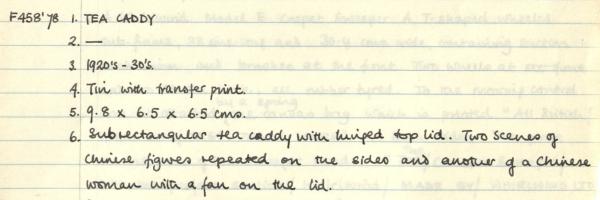 F458'78 1. TEA CADDY
2. —
3. 1920's - 30's.
4. Tin with transfer print.
5. 9.8 x 6.5 x 6.5 cms.
6. Subrectangular tea caddy with hinged top lid. Two scenes of
Chinese figures repeated on the sides and another of a Chinese
woman with a fan on the lid.